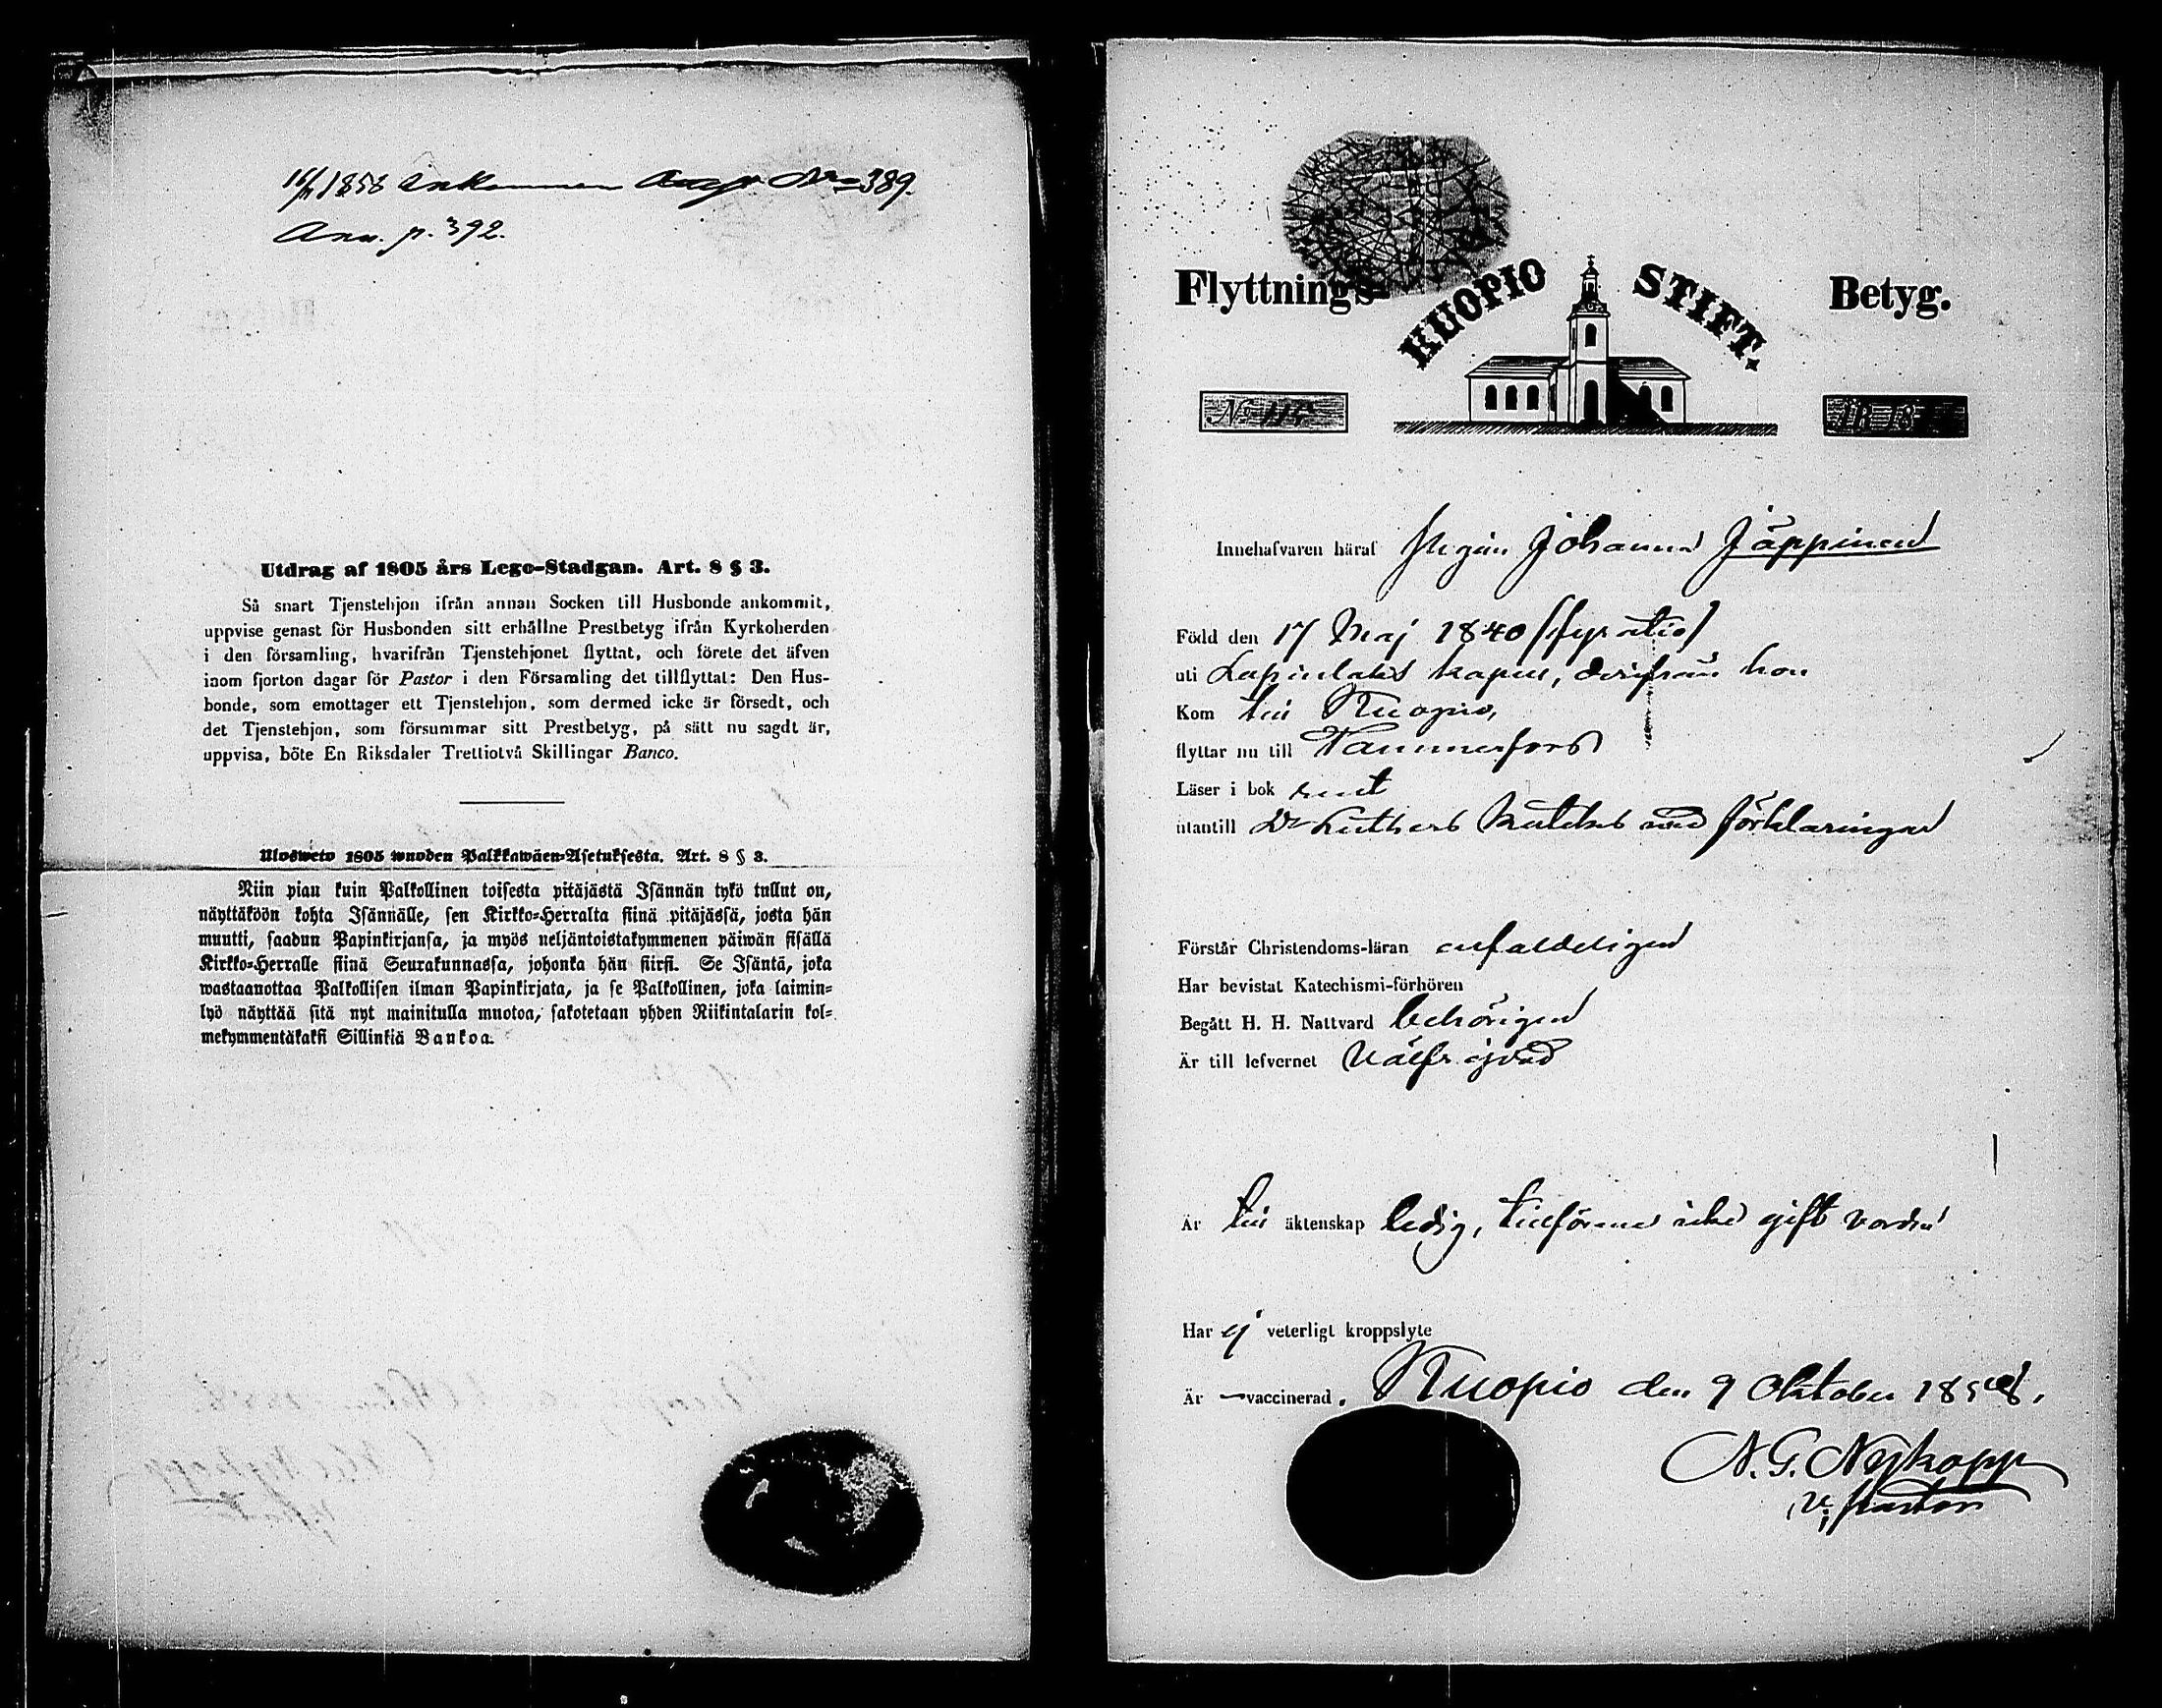 16/11 1858 Ankommen Nro 389.
Ann. p. 392.
Utdrag af 1805 års Lego-Stadgan. Art. 8 § 3.
Så snart Tjenstehjon ifrån annan Socken till Husbonde ankommit,
uppvise genast för Husbonden sitt erhållne Prestbetyg ifrån Kyrkoherden
i den församling, hvarifrån Tjenstehjonet flyttat, och förete det äfven
inom fjorton dagar för Pastor i den Församling det tillflyttat: Den Hus-
bonde, som emottager ett Tjenstehjon, som dermed icke är försedt, och
det Tjenstehjon, som försummar sitt Prestbetyg, på sätt nu sagdt är,
uppvisa, böte En Riksdaler Trettiotvå Skillingar Banco.
Ulosweto 1805 wuoden Palkkawäen-Asetuksesta. Art. 8 § 3.
Niin pian kuin Palkollinen toisesta pitäjästä Isännän tykö tullut on,
näyttäköön kohta Isännälle, sen Kirkko-Herralta siinä pitäjässä, josta hän
muutti, saadun Papinkirjansa, ja myös neljäntoistakymmenen päiwän sisällä
Kirkko-Herralle siinä Seurakunnassa, johonka hän siirsi. Se Isäntä, joka
wastaanottaa Palkollisen ilman Papinkirjata, ja se Palkollinen, joka laimin-
lyö näyttää sitä nyt mainitulla muotoa, sakotetaan yhden Riikintalarin kol-
mekymmentäkaksi Sillinkiä Bankoa.
Flyttnings- KUOPIO STIFT. Betyg.
No 115 ÅR 18
Innehafvaren häraf Pigan Johanna Jäppinen
Född den 17 Maj 1840 (fyratio)
uti Lapinlaks kapell, derifrån hon
Kom till Kuopio,
flyttar nu till Tammerfors
Läser i bok rent
utantill Dr Luthers Kateches med förklaringar
Förstår Christendoms-läran enfaldeligen
Har bevistat Katechismi-förhören
Begått H. H. Nattvard behörigen
Är till lefvernet välfrejdad
Är till äktenskap ledig, tillförene icke gift vorden
Har ej veterligt kroppslyte
Är vaccinerad. Kuopio den 9 Oktober 1858.
N. G. Nykopp
v. pastor